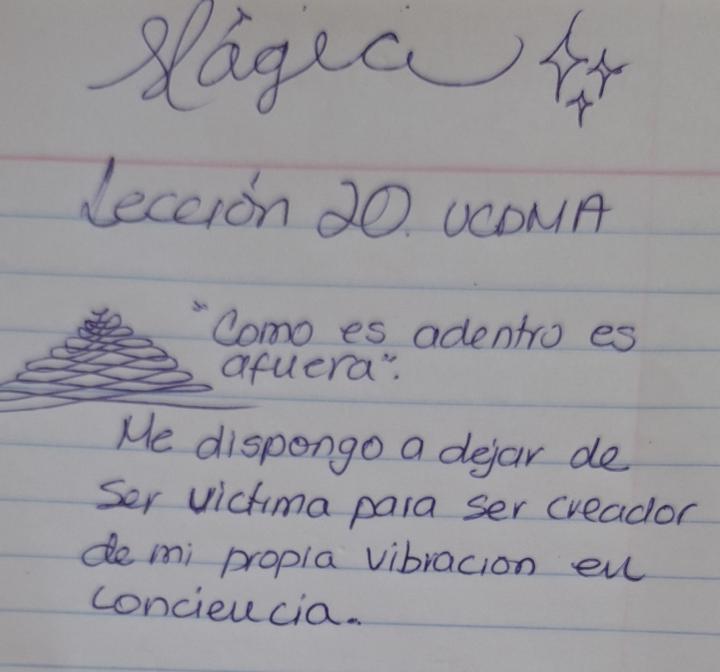 Mágica
Lección 20. UCDMA
"Como es adentro es
afuera".
Me dispongo a dejar de
ser victima para ser creador
de mi propia vibracion en
conciencia.